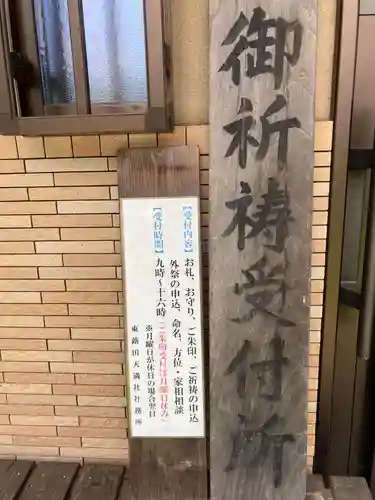 御祈祷受付所
【受付内容】お札、お守り、ご朱印、ご祈祷の申込
外祭の申込、命名、方位・家相相談
【受付時間】九時~十六時（ご朱印受付は月曜日休み）
※月曜日が休日の場合翌日
東蕗田天満社社務所